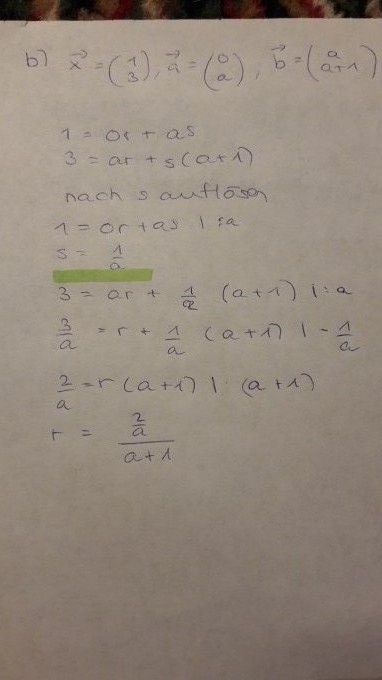 b) x⃗ = (1 3), a⃗ = (0 a), b⃗ = (a a+1)
1 = 0r + as
3 = ar + s(a+1)
nach s auflösen
1 = 0r + as | :a
s = 1/a
3 = ar + 1/a (a+1) | :a
3/a = r + 1/a (a+1) | - 1/a
2/a = r (a+1) | : (a+1)
r = (2/a)/(a+1)